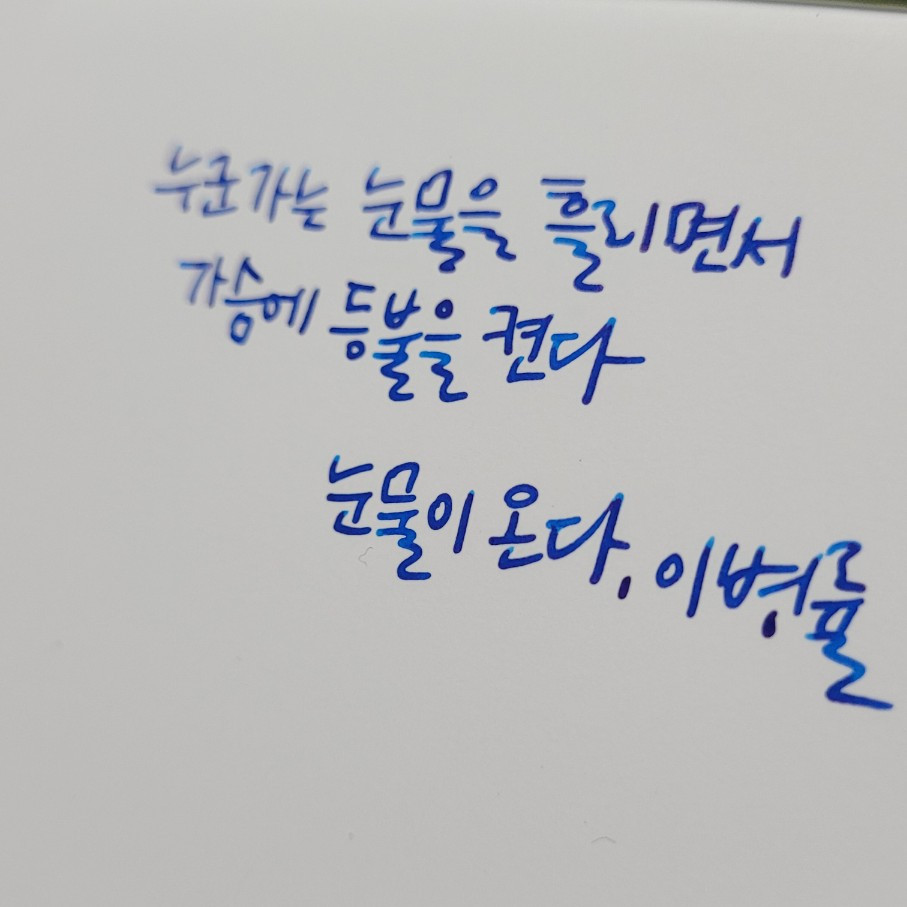 누군가는 눈물을 흘리면서
가슴에 등불을 켠다
눈물이 온다, 이병률